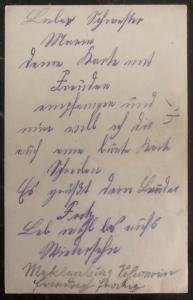 Liebe Schwester
Marie
deine Karte mit
Freuden
empfangen und
nun will ich dir
auch eine bunte Karte
schicken
Es grüßt dein Bruder
Fritz
Leb wohl bis aufs
Wiedersehn
Meklenburg Schwerin